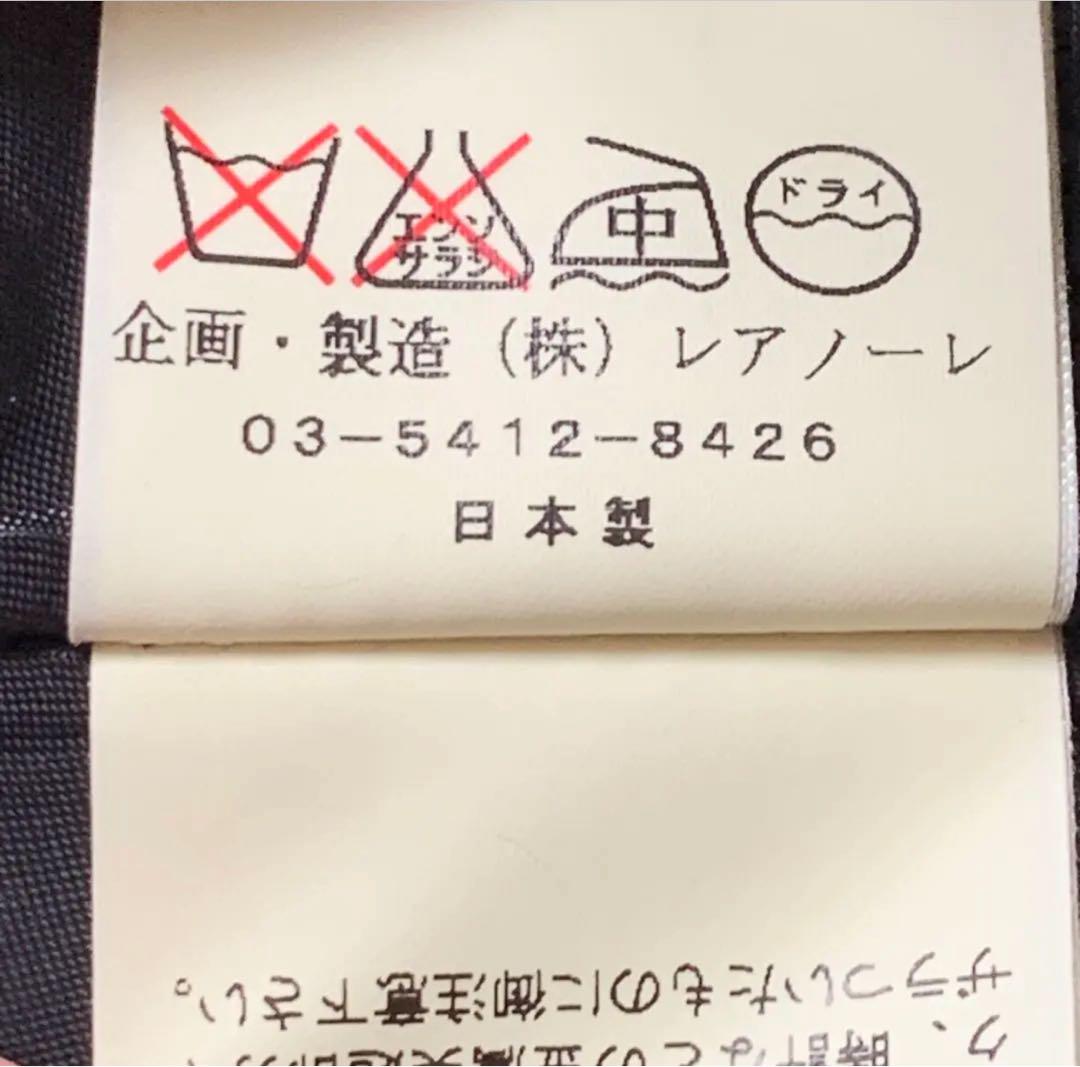 エンソ
サラシ
中
ドライ
企画・製造（株）レアノーレ
03-5412-8426
日本製
ク、時計などの
ザラついたものに御注意下さい。